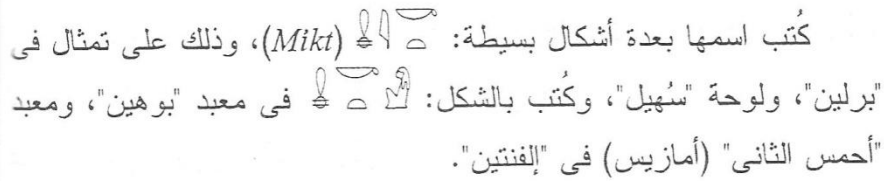 كُتب اسمها بعدة أشكال بسيطة: (Mikt)، وذلك على تمثال فى
"برلين"، ولوحة "سُهيل"، وكُتب بالشكل: فى معبد "بوهين"، ومعبد
"أحمس الثانى" (أمازيس) فى "إلفنتين".